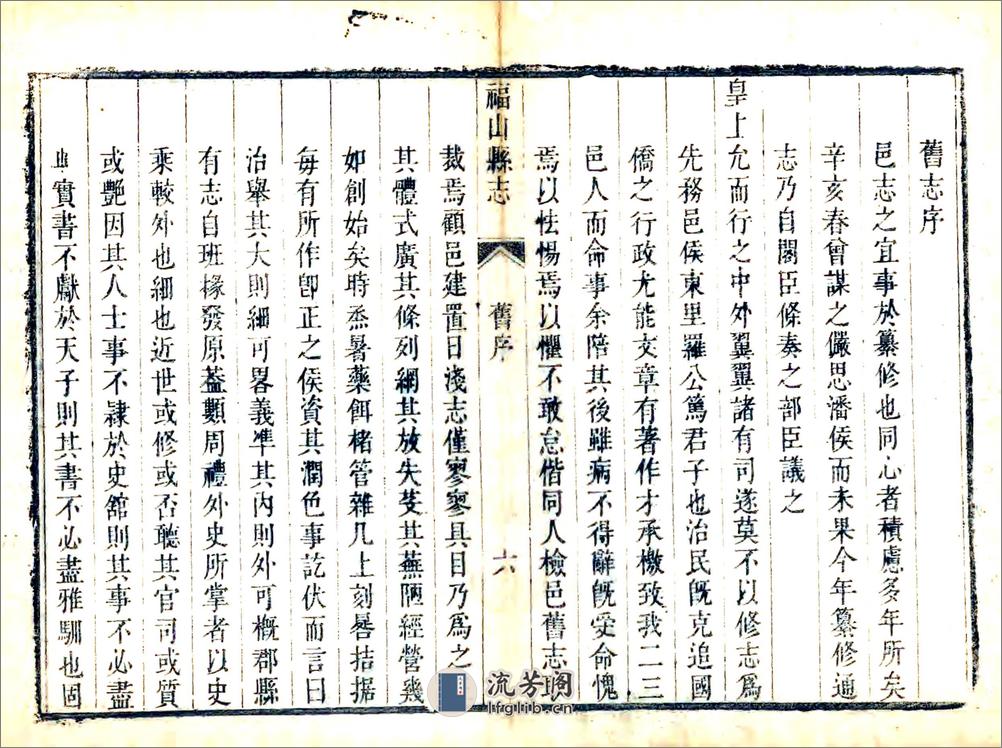 舊志序
邑志之宜事於纂修也同心者積慮多年所矣
辛亥春曾謀之儼思潘侯而未果今年纂修通
志乃自閣臣條奏之部臣議之
皇上允而行之中外翼翼諸有司遂莫不以修志爲
先務邑侯東里羅公篤君子也治民旣克追國
僑之行政尤能文章有著作才承檄致我二三
邑人而命事余陪其後雖病不得辭旣受命愧
焉以怯惕焉以懼不敢怠偕同人檢邑舊志
福山縣志
舊序
六
裁焉顧邑建置日淺志僅寥寥具目乃爲之
其體式廣其條列網其放失芟其蕪陋經營幾
如創始矣時烝暑藥餌楮管雜几上刻晷拮据
每有所作卽正之侯資其潤色事訖伏而言曰
治舉其大則細可畧義準其內則外可槪郡縣
有志自班椽發原葢纇周禮外史所掌者以史
乘較外也細也近世或修或否聽其官司或質
或艷因其人士事不隷於史舘則其事不必盡
實書不獻於天子則其書不必盡雅馴也固
流芳阁
lfglib.cn